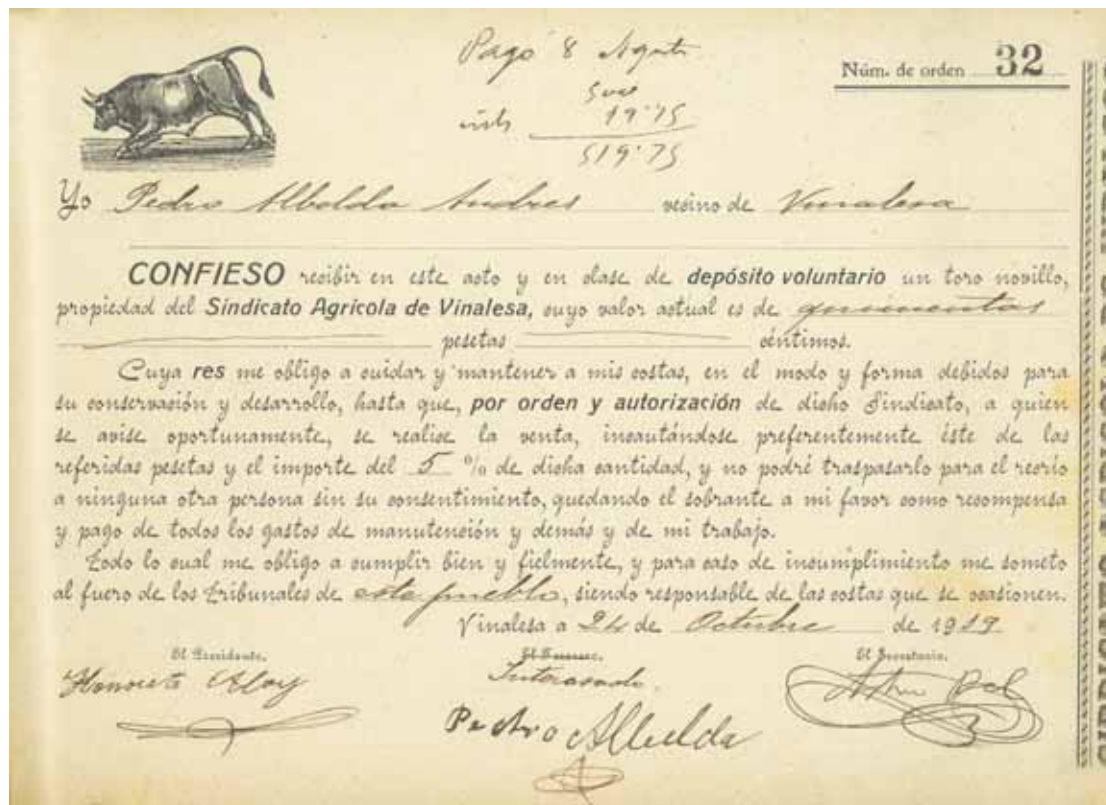 Pagó 8 Agosto
Núm. de orden 32
500
19'75
519'75
Yo Pedro Albelda Andres vecino de Vinalesa
CONFIESO recibir en este acto y en clase de depósito voluntario un toro novillo,
propiedad del Sindicato Agrícola de Vinalesa, cuyo valor actual es de quinientas
pesetas céntimos.
Cuya res me obligo a cuidar y mantener a mis costas, en el modo y forma debidos para
su conservación y desarrollo, hasta que, por orden y autorización de dicho Sindicato, a quien
se avise oportunamente, se realice la venta, incautándose preferentemente éste de las
referidas pesetas y el importe del 5 % de dicha cantidad, y no podré traspasarlo para el recrío
a ninguna otra persona sin su consentimiento, quedando el sobrante a mi favor como recompensa
y pago de todos los gastos de manutención y demás y de mi trabajo.
Todo lo cual me obligo a cumplir bien y fielmente, y para caso de incumplimiento me someto
al fuero de los Tribunales de este pueblo, siendo responsable de las costas que se ocasionen.
Vinalesa a 24 de Octubre de 1919
El Presidente, El Secretario,
Interesado
Pedro Albelda